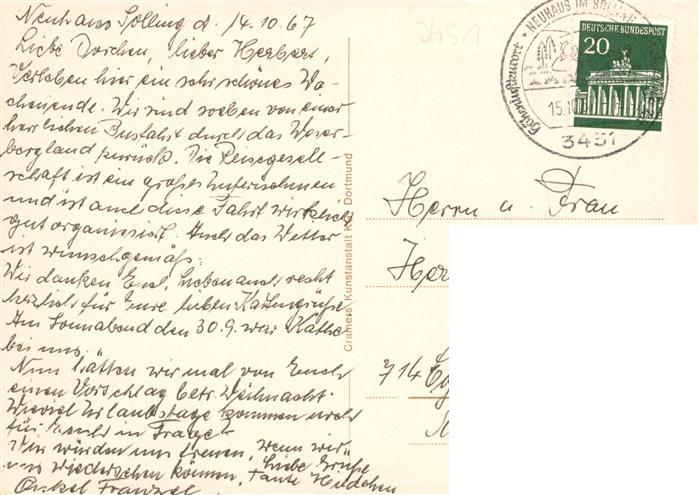 Neuhaus Solling d. 14.10.67
Liebe Dorchen, lieber Herbert,
Verleben hier ein sehr schönes Wo-
chenende. Wir sind soeben von einer
herrlichen Busfahrt durch das Weser-
bergland zurück. Die Reisegesell-
schaft ist ein großes Unternehmen
und ist auch diese Fahrt wirklich
gut organisiert. Auch das Wetter
ist wunschgemäß.
Wir danken Euch Lieben auch recht
herzlich für Eure lieben Kartengrüße.
Am Sonnabend den 30.9. war Käthe
bei uns.
Nun hätten wir mal von Euch
einen Vorschlag betr. Weihnacht.
Wieviel Urlaubstage kommen wohl
für Euch in Frage?
Wir würden uns freuen, wenn wir
uns wiedersehen können. Liebe Grüße
Tante Hedchen
Onkel Franzel
Cramers Kunstanstalt KG, Dortmund
3451
NEUHAUS IM SOLLING
Höhenluftkurort
15.10
3451
DEUTSCHE BUNDESPOST
20
Herrn u. Frau
Her
714